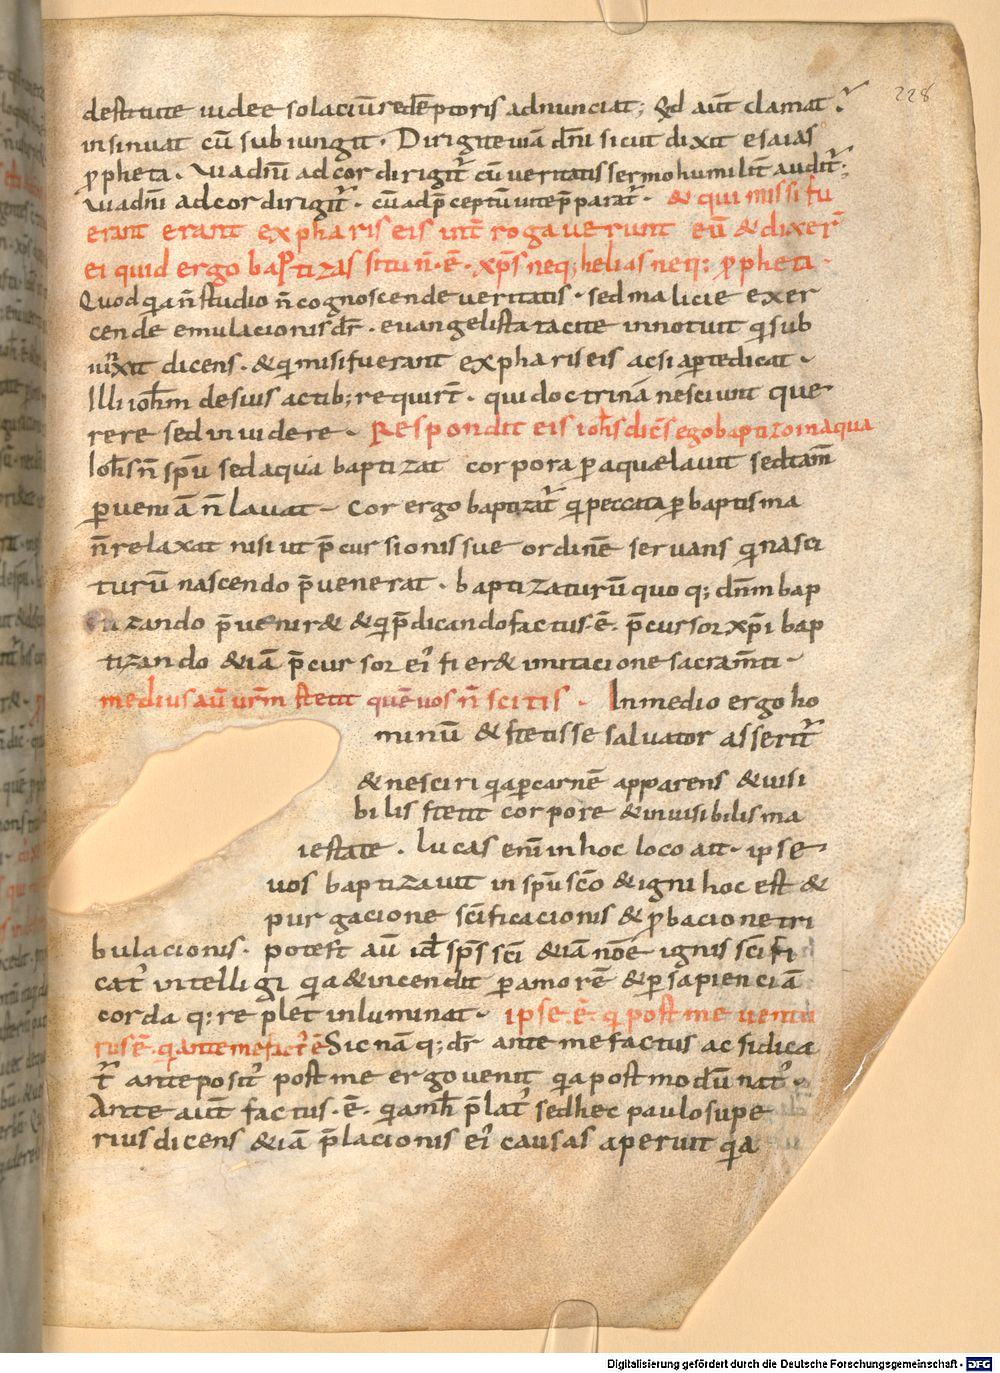 228
destitute iudee solaciū redēptoris adnunciat; Qd aūt clamat᷑
insinuat cū subiungit · Dirigite uiā dn̄i sicut dixit esaias
ꝓpheta · Via dn̄i ad cor dirigit᷑ cū ueritatis sermo humilit̄ audit᷑;
Via dn̄i ad cor dirigit᷑ · cū ad p̄ceptū uite p̄parat᷑ · & qui missi fu
erant erant ex phariseis int̄rogauerunt eū & dixer̄
ei quid ergo baptizas si tu n̄ · ē · xp̄s neq; helias neq; ꝓpheta ·
Quod quia n̄ studio n̄ cognoscende ueritatis · sed malicie exer
cende emulacionis dr̄ · euangelista tacite innotuit qi sub
iunxit dicens · & qi misi fuerant ex phariseis ac si aꝑte dicat ·
Illi ioh̄m de suis actib; requirt̄ · qui doctrinā nesciunt que
rere sed inuidere · Respondit eis ioh̄s dic̄s ego baptizo in aqua
Ioh̄s n̄ sp̄u sed aqua baptizat corpora ꝑ aquæ lauit sed tam̄
ꝑ ueniā n̄ lauat · Cor ergo baptizat᷑ qi peccata ꝑ baptisma
n̄ relaxat nisi ut p̄cursionis sue ordinē seruans qi nasci
turū nascendo p̄uenerat · baptizaturū quoq; dn̄m bap
tizando p̄uenir& & qi p̄dicando factus · ē · p̄cursor xp̄i bap
tizando &iā p̄cursor ei᷒ fier& imitacione sacram̄ti ·
medius aū urm̄ stetit quē uos n̄ scitis · In medio ergo ho
minū & stetisse saluator asserit᷑
& nesciri qia ꝑ carnē apparens & uisi
bilis stetit corpore & inuisibilis ma
iestate · lucas eni᷒ in hoc loco ait · ipse
uos baptizauit in sp̄u sc̄o & igni hoc est &
purgacione sc̄ificacionis & ꝓbacione tri
bulacionis · potest aū id̄ sp̄s sc̄i &iā nōe ignis sc̄ifi
cat᷑ intelligi qia & incendit ꝑ amorē & ꝑ sapienciā
corda q; replet inluminat · ipse · ē · qi post me uentu
rus ē · qi ante me fact᷒ ē Sic nāq; dr̄ ante me factus ac si dica
t᷑ anteposit᷒ post me ergo uenit qia postmodū nat᷒ ·
Ante aūt factus · ē · qia mh̄ p̄lat᷒ sed hec paulo supe
rius dicens &iā p̄lacionis ei᷒ causas aperuit qia
Digitalisierung gefördert durch die Deutsche Forschungsgemeinschaft - DFG